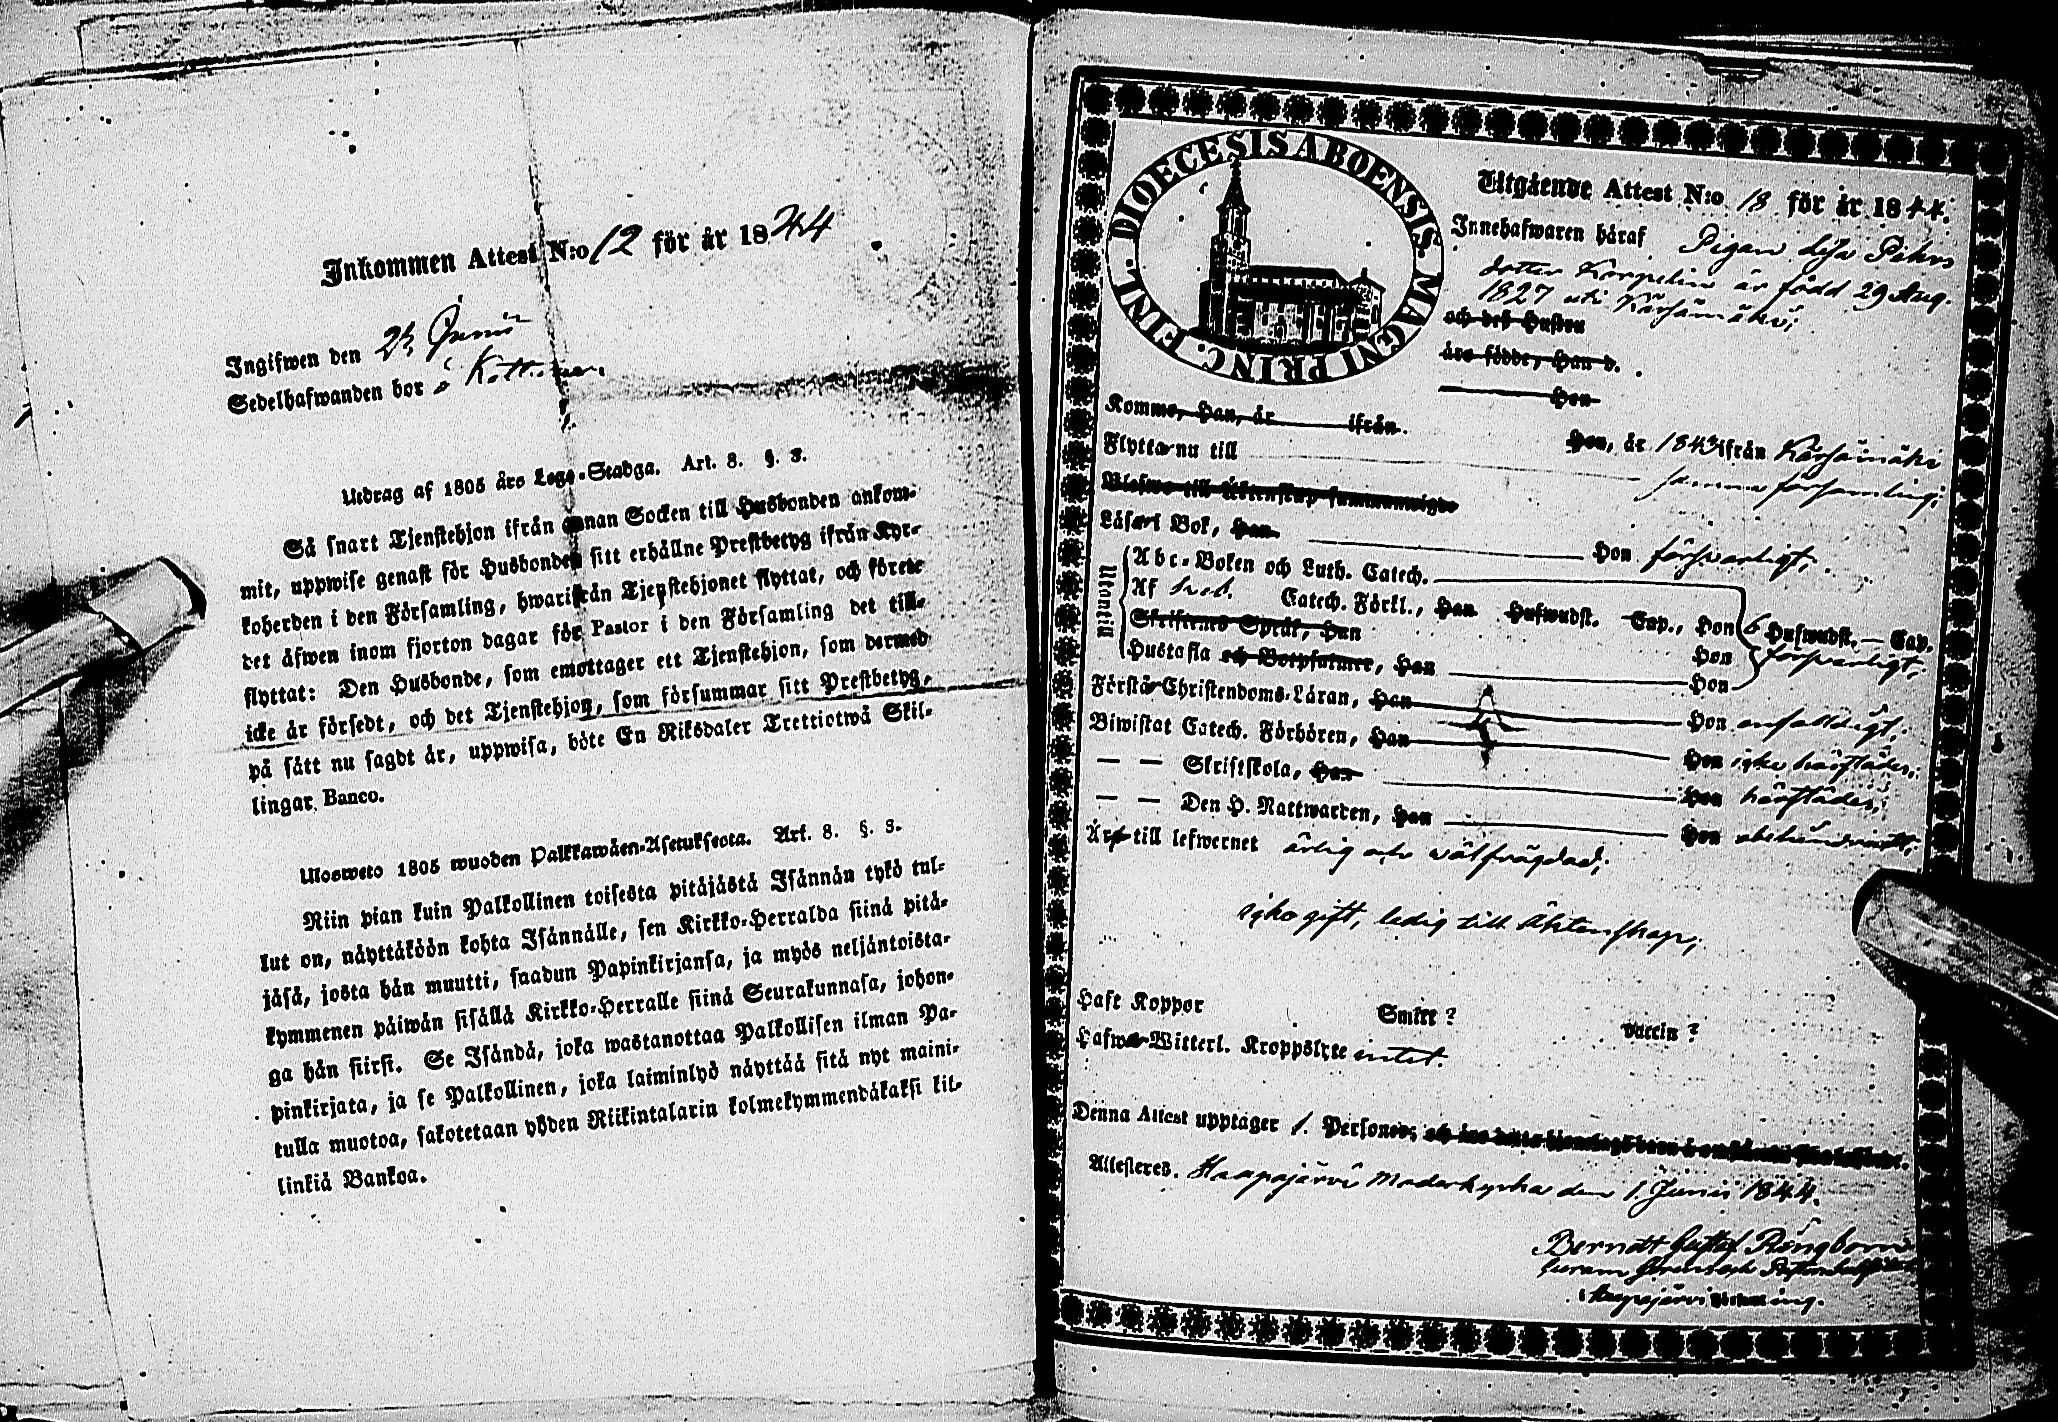 Inkommen Attest N:o 12 för år 1844
Ingifwen den 23 Junii
Sedelhafwanden bor å
Utdrag af 1805 års Lego-Stadga. Art. 8. §. 3.
Så snart Tjenstehjon ifrån annan Socken till Husbonden ankom-
mit, uppwise genast för Husbonden sitt erhållne Prestbetyg ifrån Kyr-
koherden i den Församling, hwarifrån Tjenstehjonet flyttat, och förete
det äfwen inom fjorton dagar för Pastor i den Församling det till-
flyttat: Den Husbonde, som emottager ett Tjenstehjon, som dermed
icke är försedt, och det Tjenstehjon, som försummar sitt Prestbetyg,
på sätt nu sagdt är, uppwisa, böte En Riksdaler Trettiotwå Skil-
lingar Banco.
Ulosweto 1805 wuoden Palkkawäen-Asetuksesta. Art. 8. §. 3.
Niin pian kuin Palkollinen toisesta pitäjästä Isännän tykö tul-
lut on, näyttäköön kohta Isännälle, sen Kirkko-Herralda siinä pitä-
jäsä, josta hän muutti, saadun Papinkirjansa, ja myös neljäntoista-
kymmenen päiwän sisällä Kirkko-Herralle siinä Seurakunnasa, johon-
ga hän siirsi. Se Isändä, joka wastanottaa Palkollisen ilman Pa-
pinkirjata, ja se Palkollinen, joka laiminlyö näyttää sitä nyt maini-
tulla muotoa, sakotetaan yhden Riikintalarin kolmekymmendäkaksi kil-
linkiä Bankoa.
DIOECESIS ABOENSIS. MAGNI PRINC. FINL.
Utgående Attest N:o 18 för år 1844.
Innehafwaren häraf Pigan Lisa Pehrs
dotter Korpelin är född 29 Aug.
1827 uti Kärsämäki;
och dess Hustru
äro födde, Han d.
Hon
Komme, Han, år ifrån
Hon, år 1843 ifrån Kärsämäki
Flyttar nu till samma församling;
Läser i Bok, Han Hon försvarligt,
Utontill
Abc-Boken och Luth. Catech.
Af Catech. Förkl., Han Hufwudst. Cap., Hon 6 Hufwudst. — Cap.
Skriftenes Språk, Han Hon försvarligt,
Hustafla och Botpsalmer, Han Hon
Förstår Christendoms-Läran, Han Hon enfaldigt,
Biwistat Catech. Förhören, Han Hon icke härstädes,
— — Skriftskola, Han Hon härstädes,
— — Den H. Nattwarden, Han Hon obehindradt,
Är till lefwernet ärlig och välfrägdad;
icke gift, ledig till Äktenskap;
Haft Koppor Smitt? Vaccin?
Hafwer Witterl. Kroppslyte intet.
Denna Attest upptager 1. Personer,
Attesteres. Haapajärvi Moderkyrka den 1. Junii 1844.
Berndt Gustaf Rongborn
i Haapajärvi